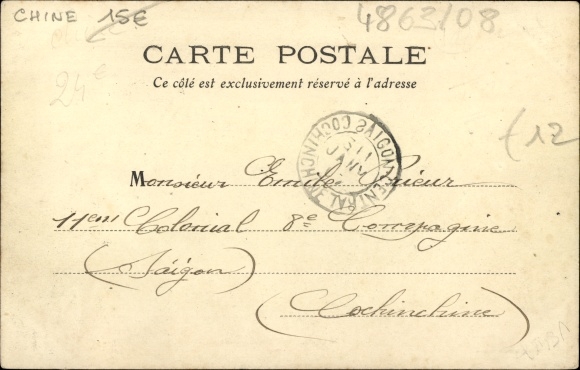 CHINE 15E
4863/08
CARTE POSTALE
Ce côté est exclusivement réservé à l'adresse
24€
€12
SAIGON CENTRAL COCHINCHINE
Monsieur Emile
11em Colonial 8e Compagnie
(Saïgon)
(Cochinchine)